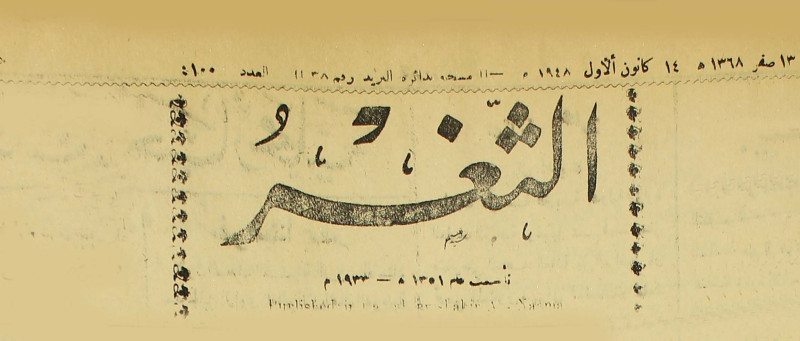 ١٣ صفر ١٣٦٨ ه ١٤ كانون ألأول ١٩٤٨ م — ١١ مسجلة بدائرة البريد رقم ١١٣٨ العدد ٤١٠٠
الثغر
تأسست عام ١٣٥١ ه — ١٩٣٣ م
Published in